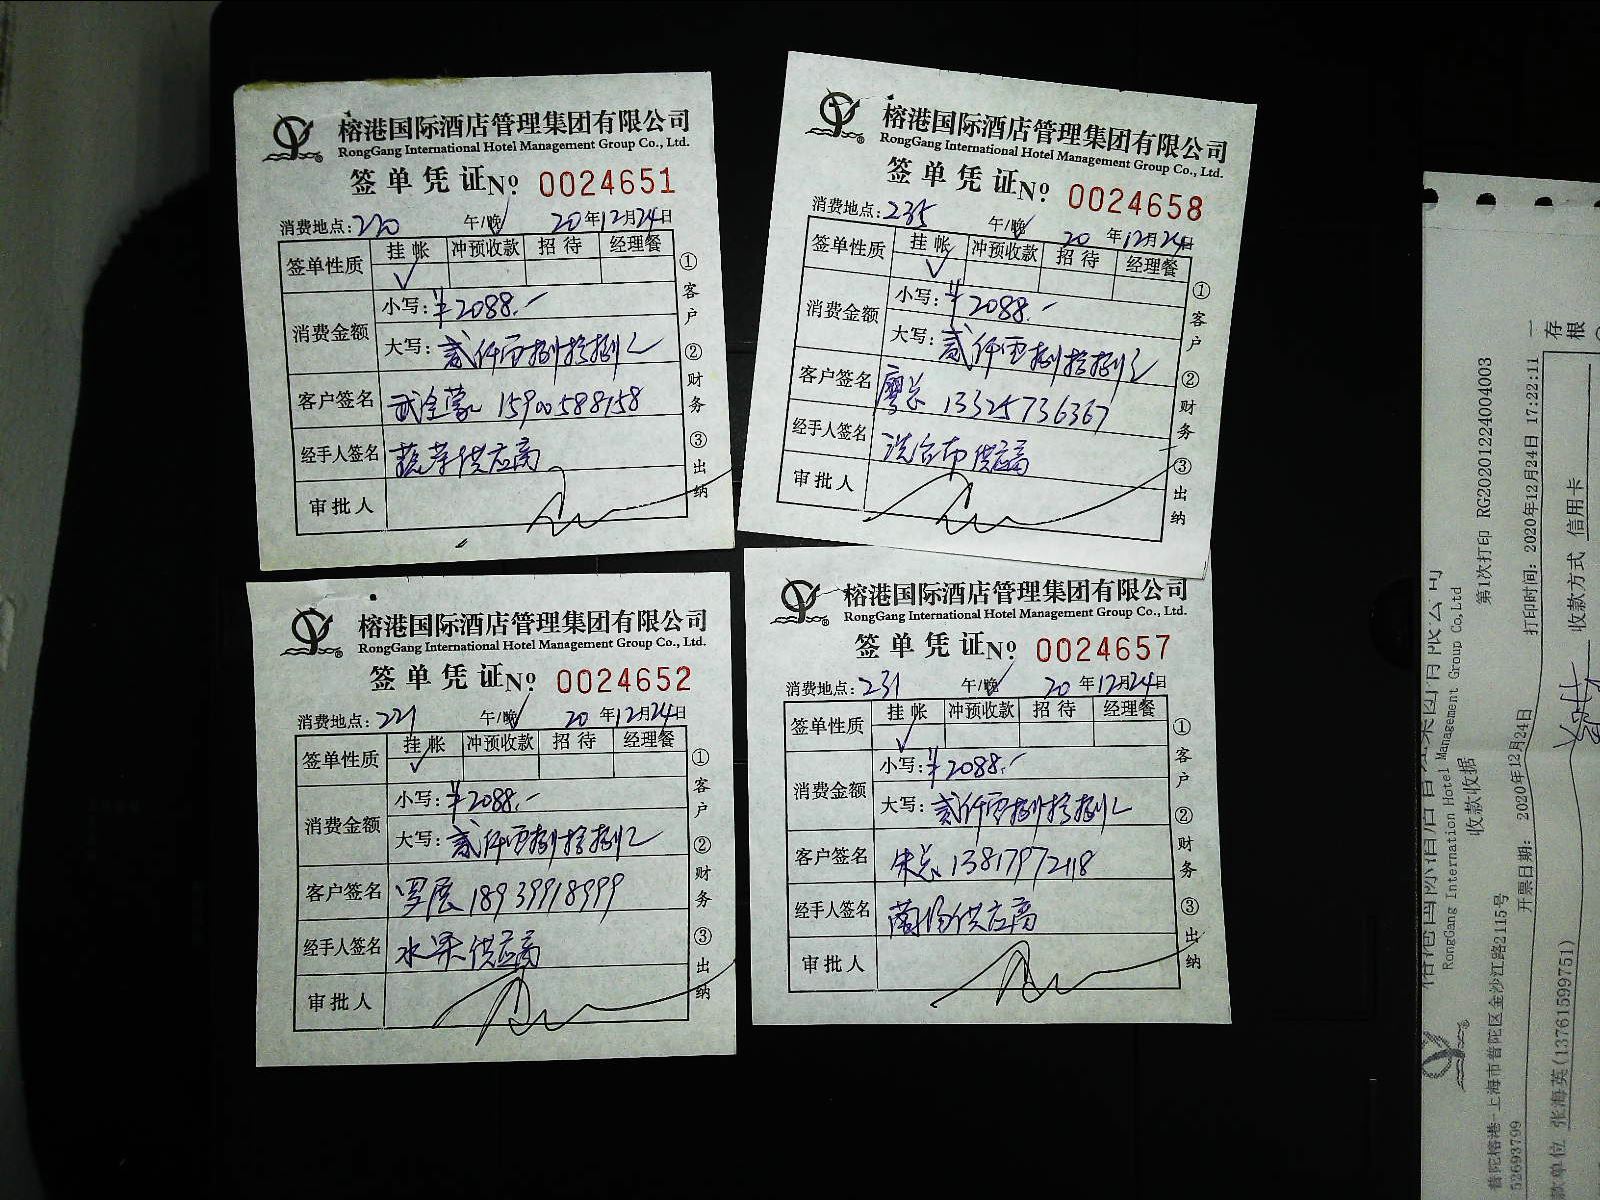 榕港国际酒店管理集团有限公司
RongGang International Hotel Management Group Co., Ltd.
签单凭证 No. 0024651
消费地点: 220 午/晚 20年12月24日
签单性质 挂帐 冲预收款 招待 经理餐
消费金额 小写: ¥2088.-
大写: 贰仟零捌拾捌元
客户签名 15900588158
经手人签名 蔬菜供应商
审批人
①客户 ②财务 ③出纳
榕港国际酒店管理集团有限公司
RongGang International Hotel Management Group Co., Ltd.
签单凭证 No. 0024658
消费地点: 235 午/晚 20年12月24日
签单性质 挂帐 冲预收款 招待 经理餐
消费金额 小写: ¥2088.-
大写: 贰仟零捌拾捌元
客户签名 廖总 13325736367
经手人签名 供应商
审批人
①客户 ②财务 ③出纳
榕港国际酒店管理集团有限公司
RongGang International Hotel Management Group Co., Ltd.
签单凭证 No. 0024652
消费地点: 221 午/晚 20年12月24日
签单性质 挂帐 冲预收款 招待 经理餐
消费金额 小写: ¥2088.-
大写: 贰仟零捌拾捌元
客户签名 罗展 18939918999
经手人签名 水果供应商
审批人
①客户 ②财务 ③出纳
榕港国际酒店管理集团有限公司
RongGang International Hotel Management Group Co., Ltd.
签单凭证 No. 0024657
消费地点: 231 午/晚 20年12月24日
签单性质 挂帐 冲预收款 招待 经理餐
消费金额 小写: ¥2088.-
大写: 贰仟零捌拾捌元
客户签名 朱总 13817972118
经手人签名 供应商
审批人
①客户 ②财务 ③出纳
榕港国际酒店管理集团有限公司
RongGang International Hotel Management Group Co,Ltd
收款收据 第1次打印 RG20201224004003
普陀榕港-上海市普陀区金沙江路2115号
52693799 开票日期: 2020年12月24日 打印时间: 2020年12月24日 17:22:11
款单位 张海英(13761599751) 收款方式 信用卡
一存根